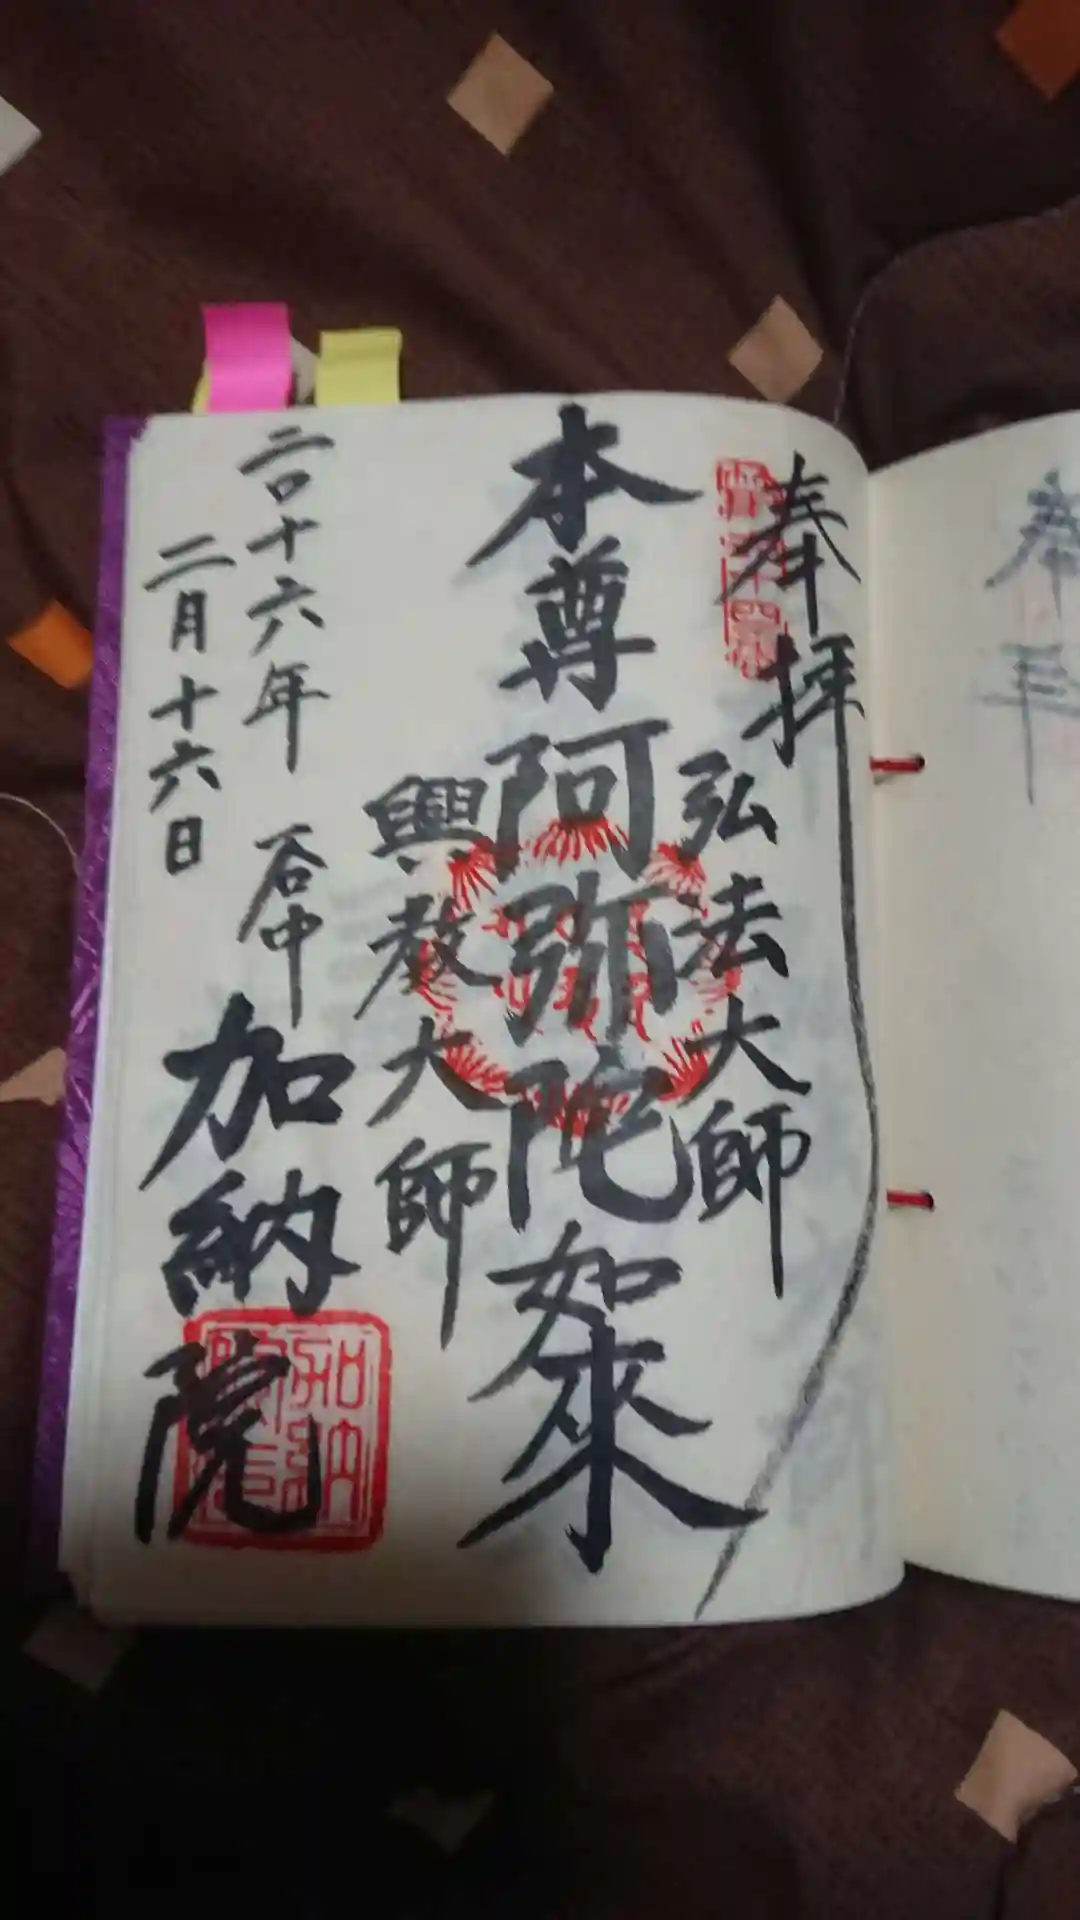 奉拝
弘法大師
本尊阿弥陀如來
興教大師
二〇十六年
二月十六日
谷中
加納院
奉